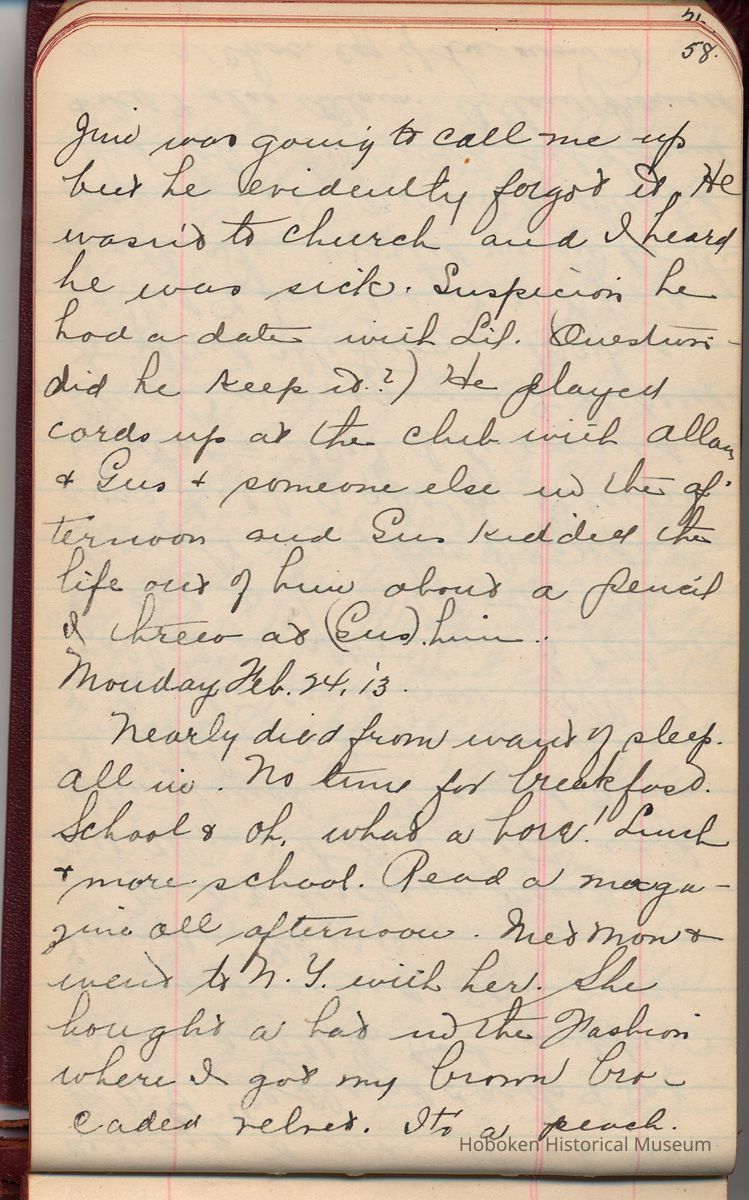 58.
Jim was going to call me up
but he evidently forgot it. He
wasn't to church and I heard
he was sick. Suspicion he
had a date with Lil. (Question -
did he keep it?) He played
cards up at the club with Allan
& Gus & someone else in the af-
ternoon and Gus kidded the
life out of him about a pencil
I threw at (Gus) him.
Monday Feb. 24, '13.
Nearly died from want of sleep.
All in. No time for breakfast.
School & oh, what a bore! Lunch
& more school. Read a maga-
zine all afternoon. Met Mon &
went to N. Y. with her. She
bought a hat in the Fashion
where I got my brown bro-
caded velvet. It's a peach.
Hoboken Historical Museum